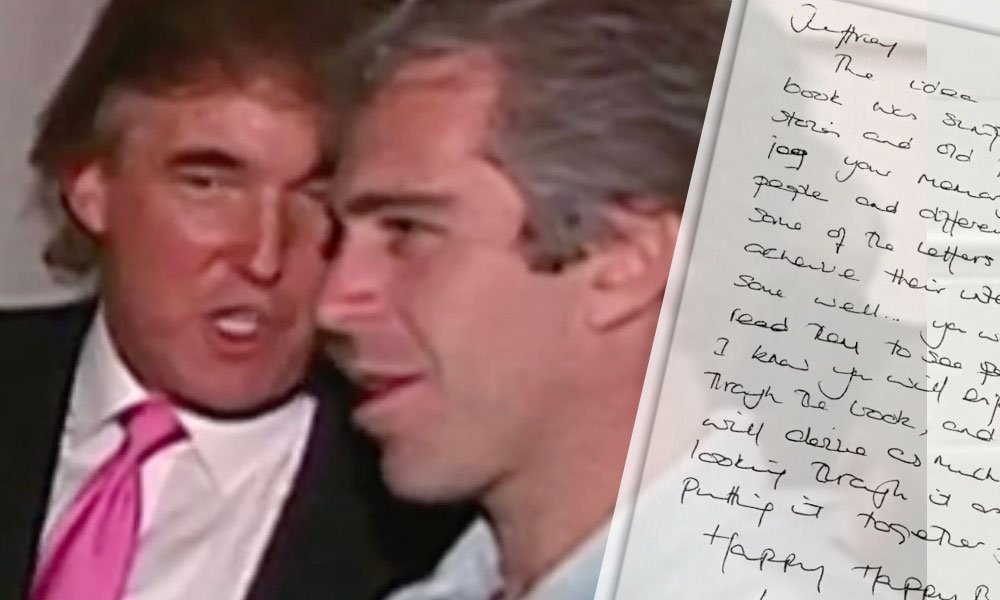 Jeffrey
The idea
book was simp
stories and old
jog your memor
people and differen
some of the letters
achieve their inte
some well... you w
read them to see
I know you will enj
through the book, and
will derive as much
looking through it as
putting it together
Happy Happy B